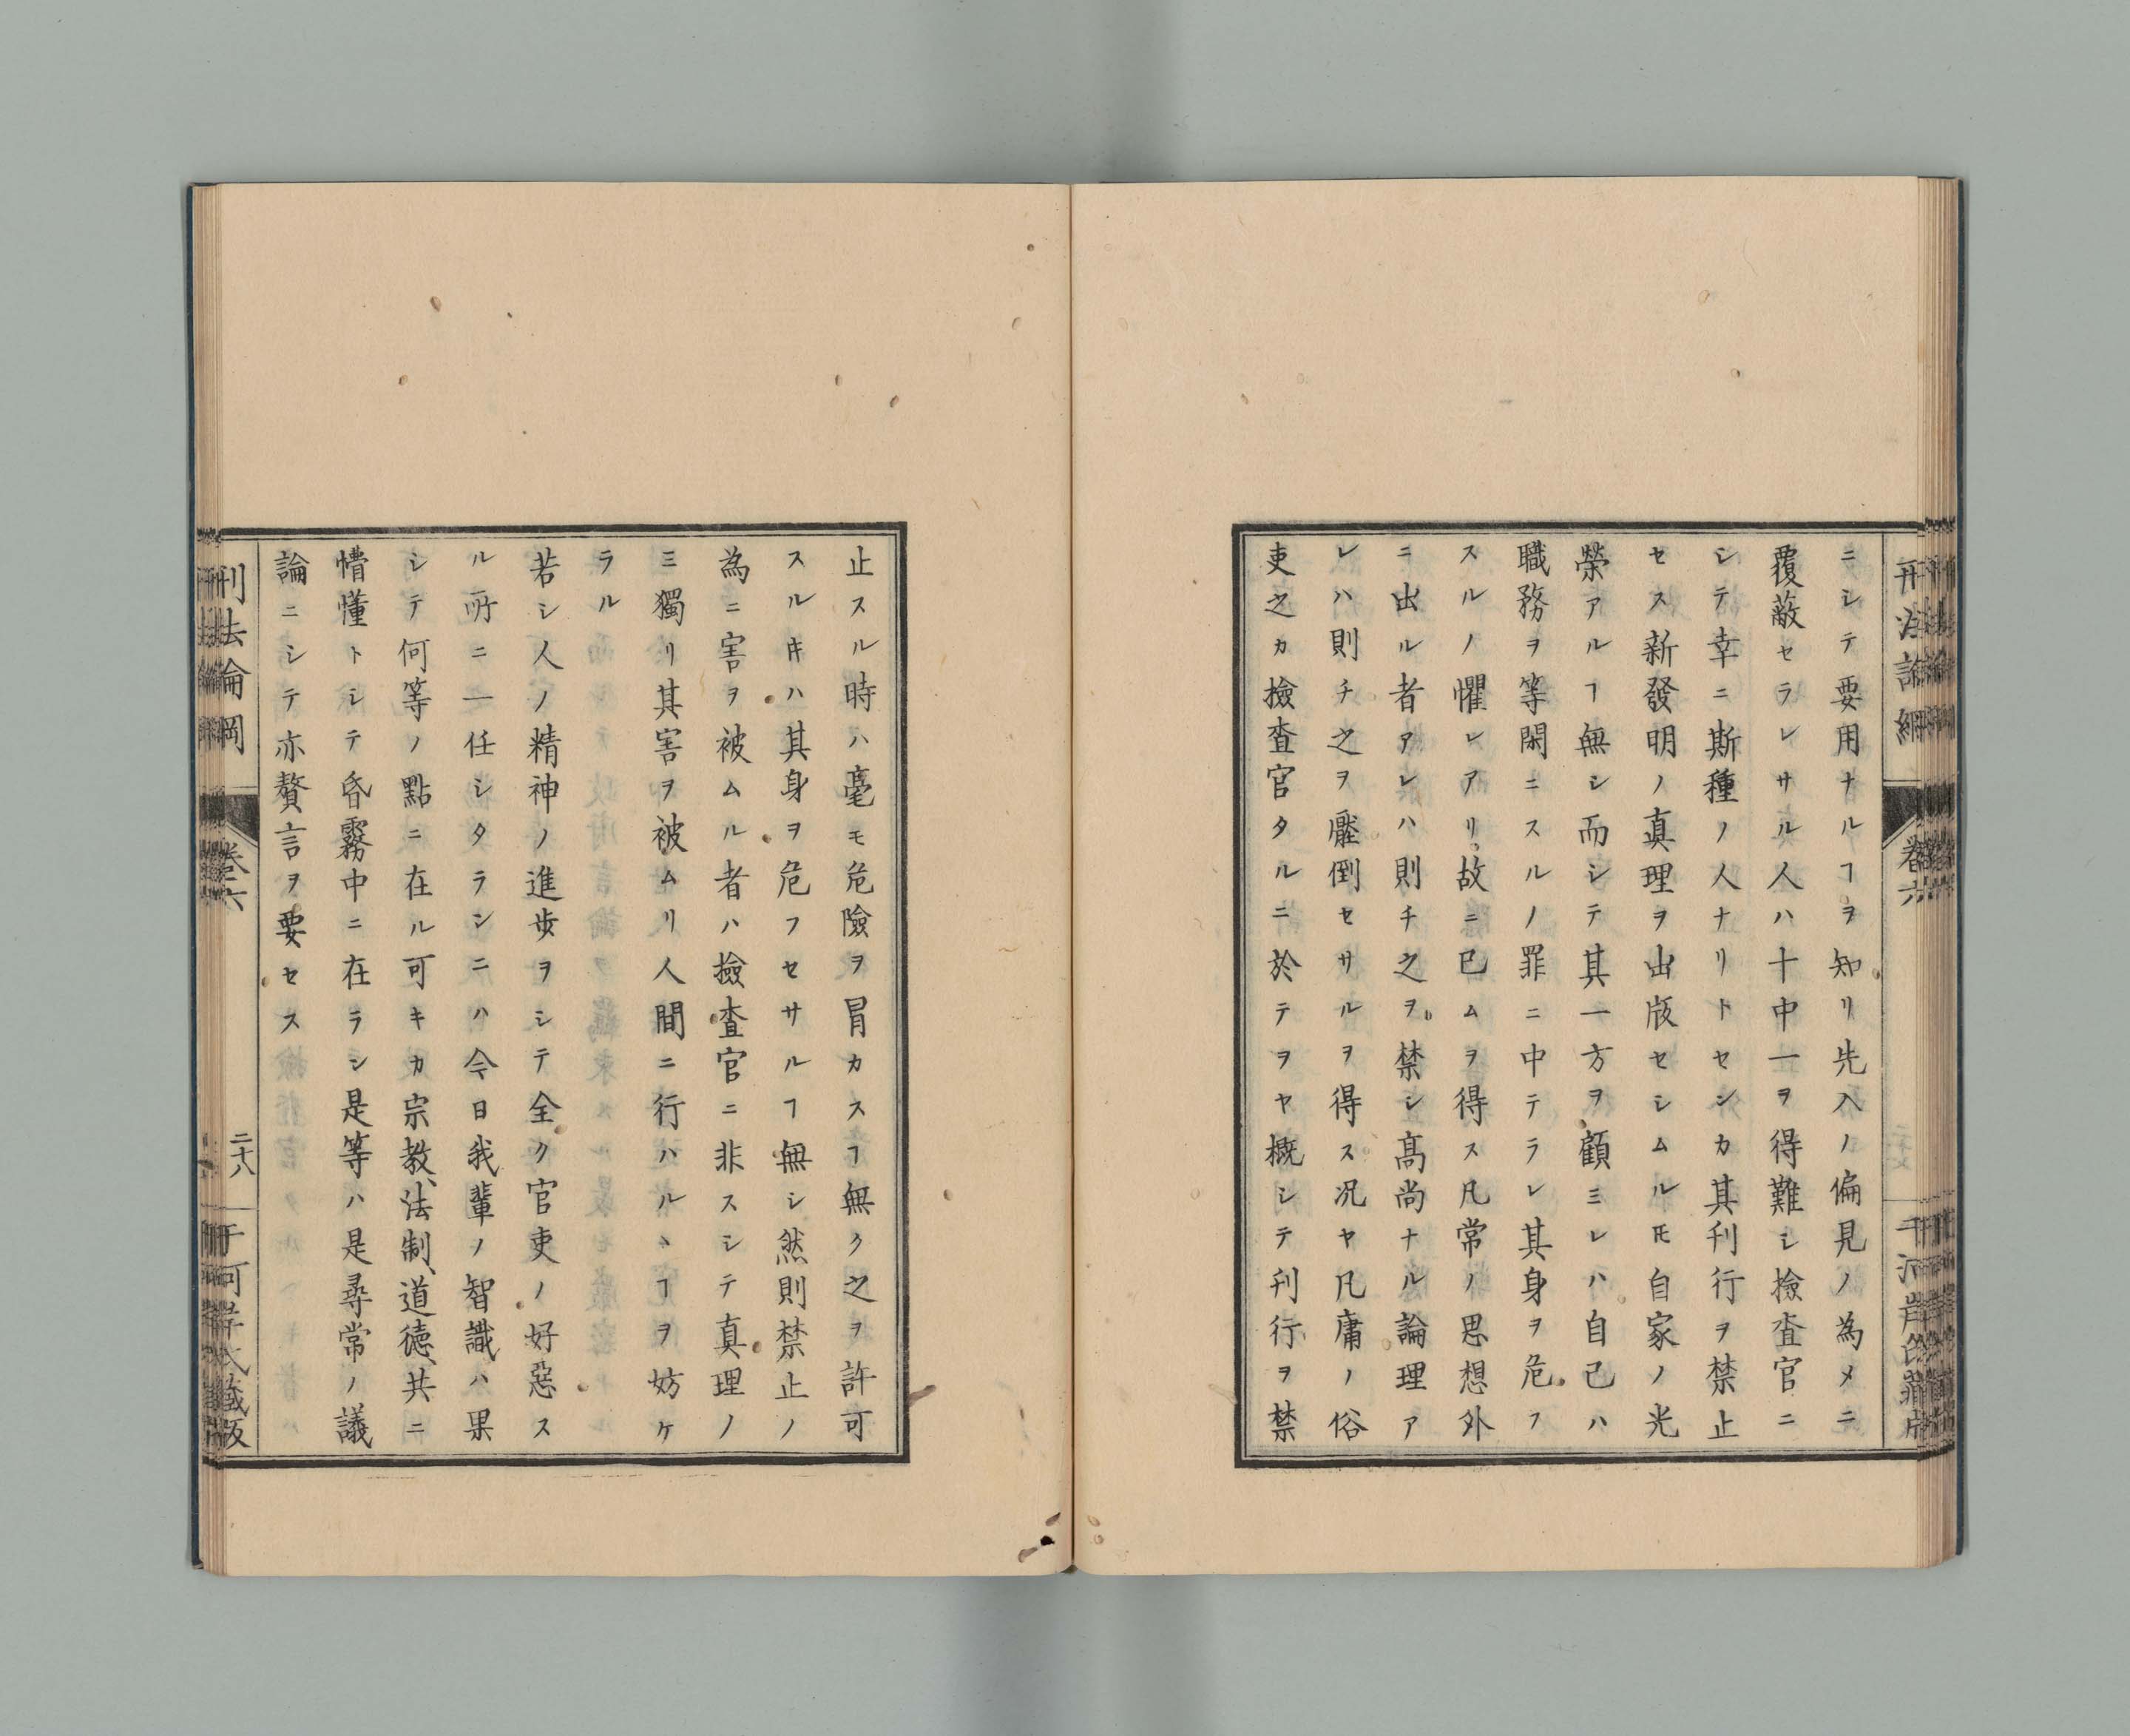 ニシテ要用ナルヿヲ知リ先入ノ偏見ノ為メニ
覆蔽セラレサル人ハ十中一ヲ得難シ撿査官ニ
シテ幸ニ斯種ノ人ナリトセンカ其刊行ヲ禁止
セス新發明ノ真理ヲ出版セシムルモ自家ノ光
榮アルヿ無シ而シテ其一方ヲ顧ミレハ自己ハ
職務ヲ等閑ニスルノ罪ニ中テラレ其身ヲ危フ
スルノ懼レアリ故ニ已ムヲ得ス凡常ノ思想外
ニ出ル者アレハ則チ之ヲ禁シ髙尚ナル論理ア
レハ則チ之ヲ壓倒セサルヲ得ス况ヤ凡庸ノ俗
吏之カ撿査官タルニ於テヲヤ概シテ刊行ヲ禁
止スル時ハ毫モ危險ヲ冒カスヿ無ク之ヲ許可
スルキハ其身ヲ危フセサルヿ無シ然則禁止ノ
為ニ害ヲ被ムル者ハ撿査官ニ非スシテ真理ノ
三獨リ其害ヲ被ムリ人間ニ行ハルヽヿヲ妨ケ
ラル
若シ人ノ精神ノ進歩ヲシテ全ク官吏ノ好惡ス
ル所ニ一任シタランニハ今日我輩ノ智識ハ果
シテ何等ノ點ニ在ル可キカ宗教、法制、道德、共ニ
懵懂トシテ昏霧中ニ在ラン是等ハ是尋常ノ議
論ニシテ亦贅言ヲ要セス
刑法論綱
卷六
二十八